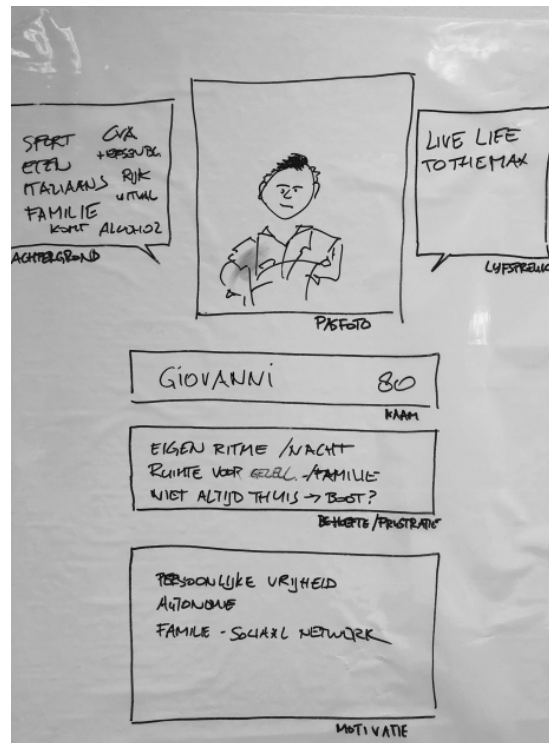 SPORT CVA
ETEN
ITALIAANS RIJK
FAMILIE UITVAL
KOMT ALCOHOL
ACHTERGROND
LIVE LIFE
TO THE MAX
LIJFSPREUK
PASFOTO
GIOVANNI 80
NAAM
EIGEN RITME / NACHT
RUIMTE VOOR -/FAMILIE
NIET ALTIJD THUIS → BOOT?
BEHOEFTE/FRUSTRATIE
PERSOONLIJKE VRIJHEID
AUTONOMIE
FAMILIE - SOCIAAL NETWERK
MOTIVATIE